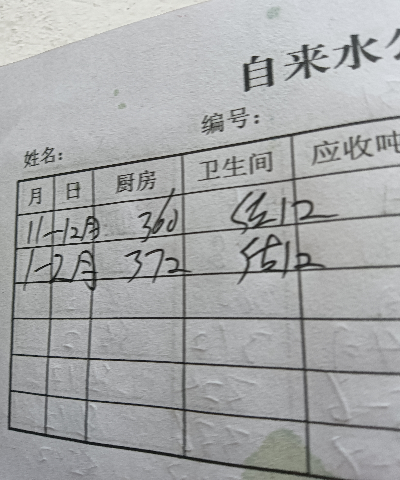 自来水
编号：
姓名：
月 日 厨房 卫生间 应收吨
11-12月 360 结12
1-2月 372 结12